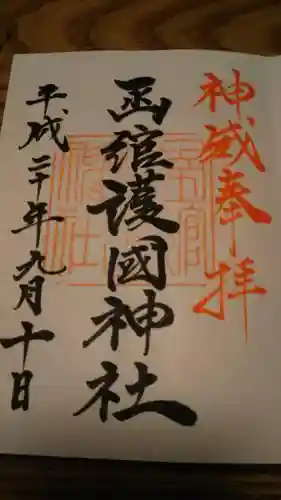 神威奉拝
函館護國神社
平成二十年九月十日